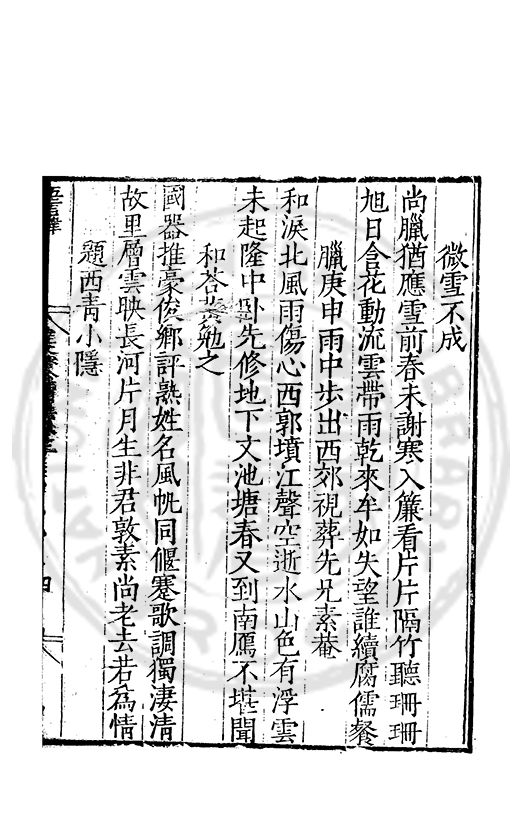 微雪不成
尚臘猶應雪前春未謝寒入簾看片片隔竹聽珊珊
旭日含花動流雲帶雨乾來牟如失望誰續腐儒餐
臘庚申雨中步出西郊視葬先兄素菴
和淚北風雨傷心西郭墳江聲空逝水山色有浮雲
未起隆中臥先修地下文池塘春又到南鴈不堪聞
和荅黃勉之
國器推豪俊鄉評熟姓名風帆同偃蹇歌調獨淒清
故里層雲映長河片月生非君敦素尚老去若爲情
題西青小隱